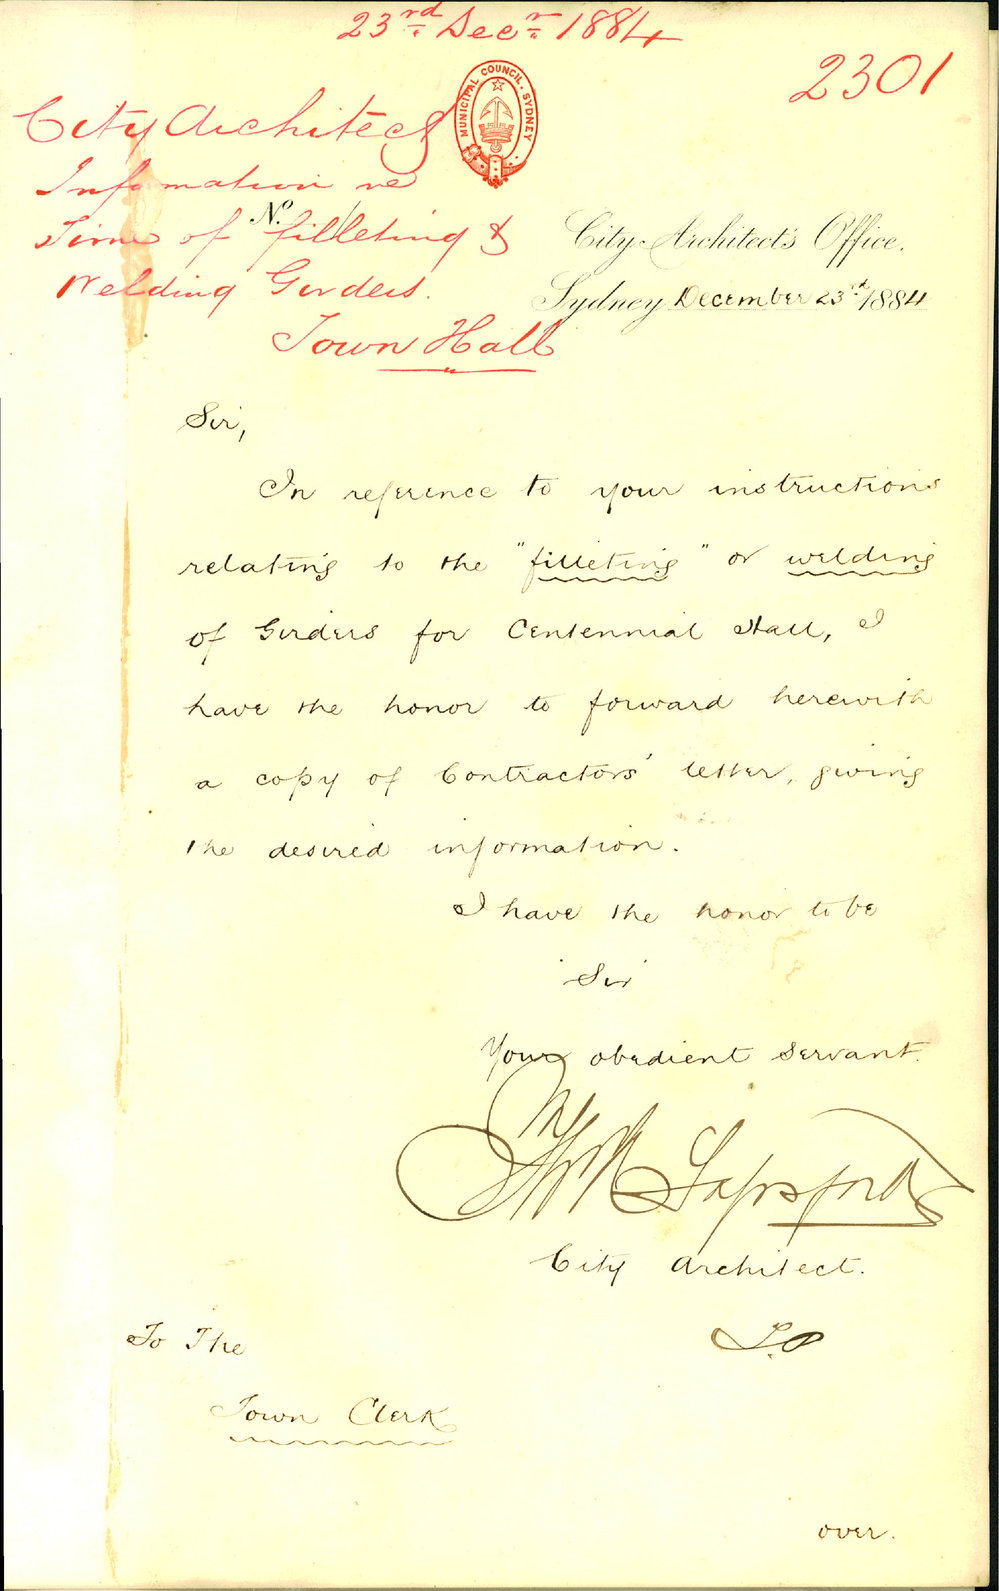 23rd Decr 1884
2301
MUNICIPAL COUNCIL. SYDNEY
City Architect
Information re
Time of filleting &
Welding Girders.
Town Hall
No.
City Architect's Office.
Sydney December 23rd 1884
Sir,
In reference to your instructions
relating to the "filleting" or welding
of Girders for Centennial Hall, I
have the honor to forward herewith
a copy of Contractors' letter, giving
the desired information.
I have the honor to be
Sir
Your obedient servant.
Sapsford
City Architect.
To The
Town Clerk
over.